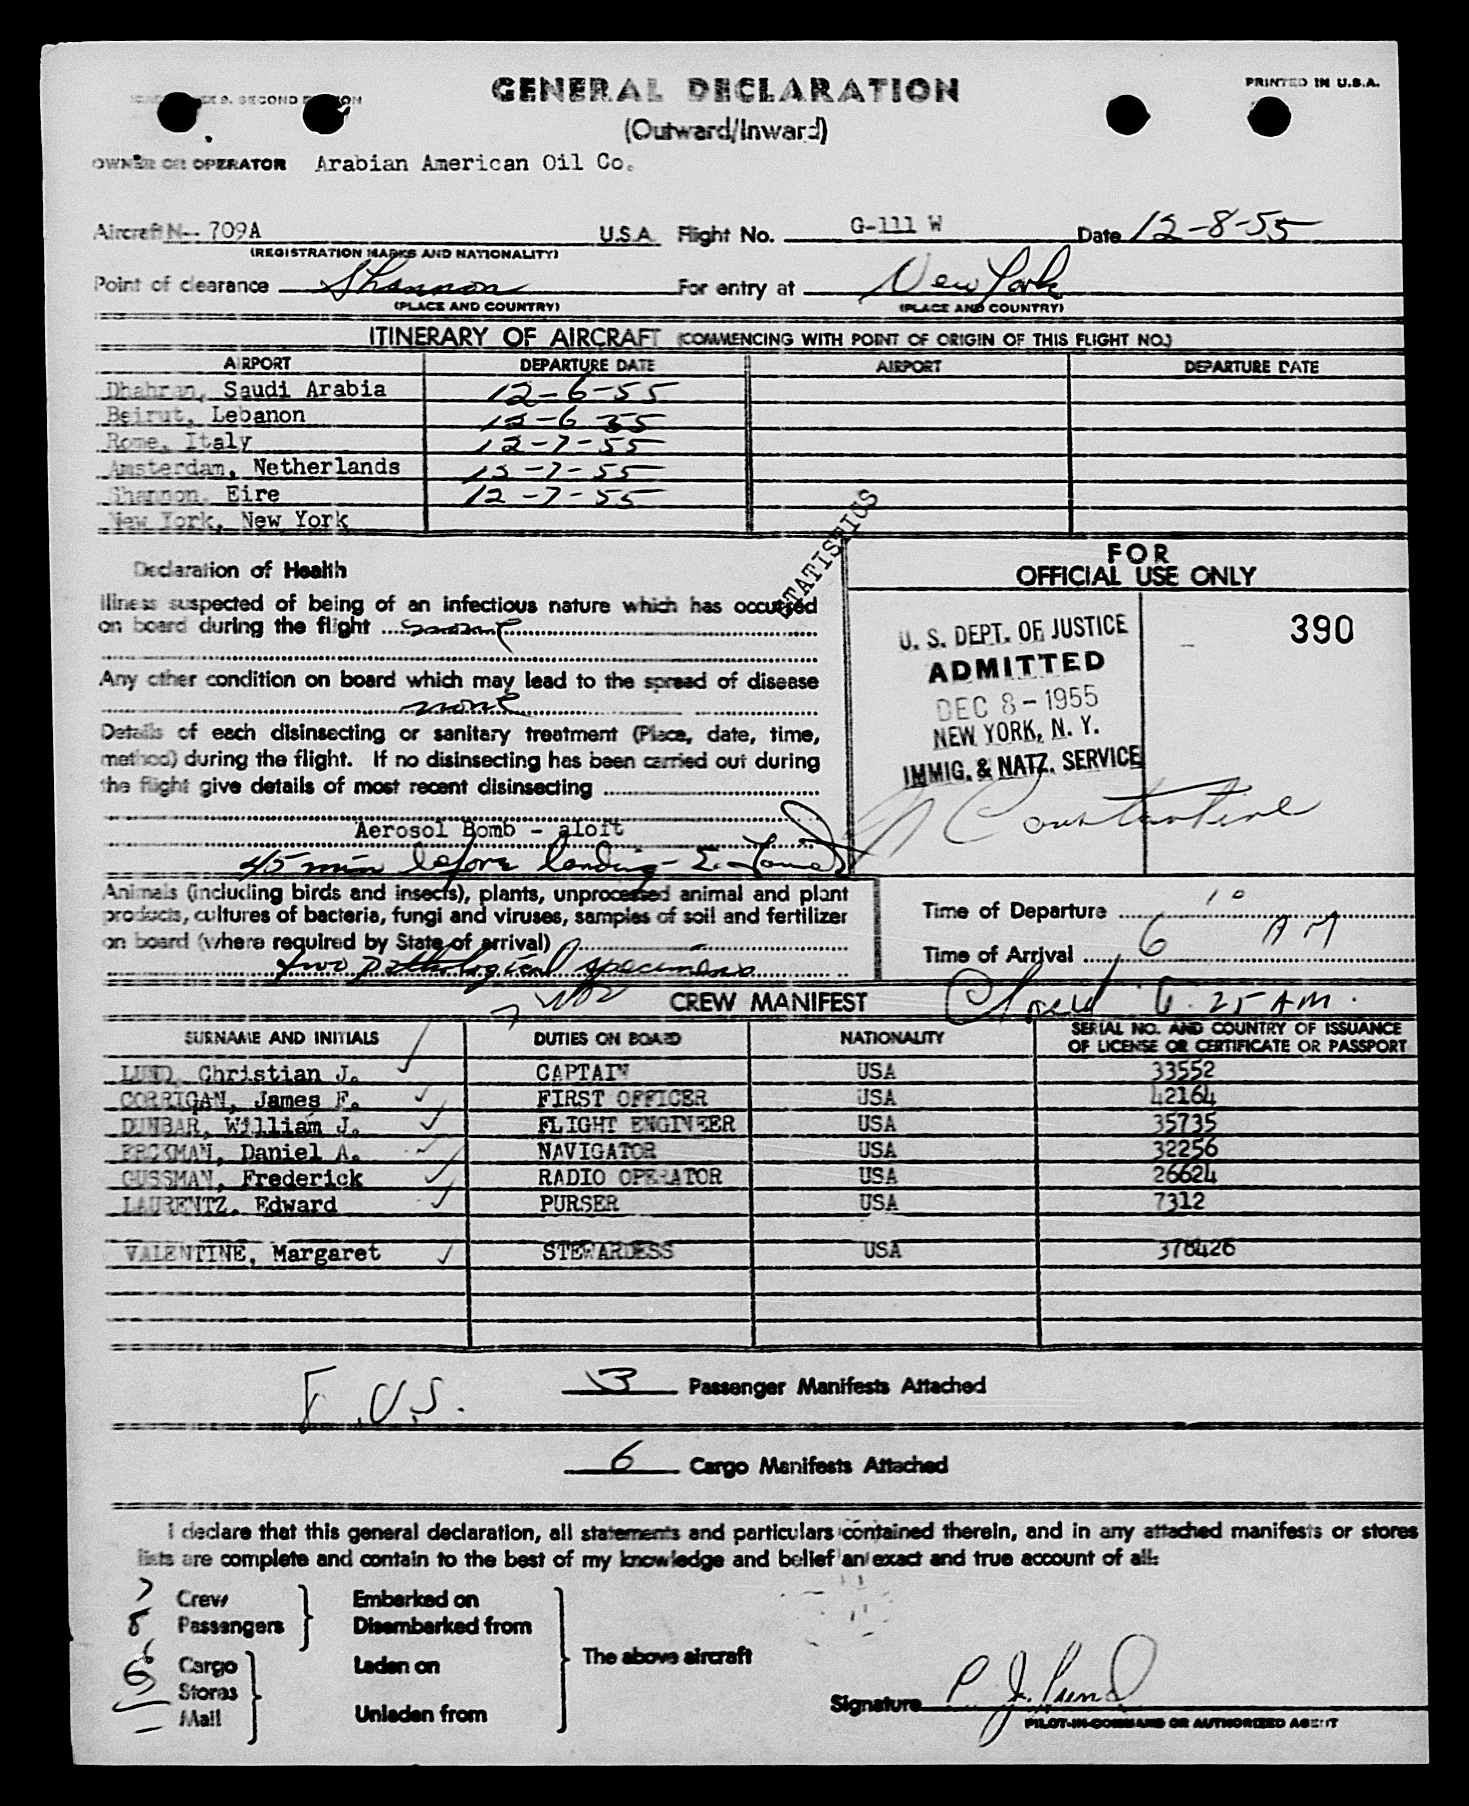 SECOND
PRINTED IN U.S.A.
GENERAL DECLARATION
(Outward/Inward)
OWNER OR OPERATOR Arabian American Oil Co.
Aircraft N-- 709A U.S.A. Flight No. G-111 W Date 12-8-55
(REGISTRATION MARKS AND NATIONALITY)
Point of clearance Shannon For entry at New York
(PLACE AND COUNTRY) (PLACE AND COUNTRY)
ITINERARY OF AIRCRAFT (COMMENCING WITH POINT OF ORIGIN OF THIS FLIGHT NO.)
AIRPORT DEPARTURE DATE AIRPORT DEPARTURE DATE
Dhahran, Saudi Arabia 12-6-55
Beirut, Lebanon 12-6-55
Rome, Italy 12-7-55
Amsterdam, Netherlands 12-7-55
Shannon, Eire 12-7-55
New York, New York
STATISTICS
Declaration of Health
Illness suspected of being of an infectious nature which has occurred
on board during the flight none
Any other condition on board which may lead to the spread of disease
none
Details of each disinsecting or sanitary treatment (Place, date, time,
method) during the flight. If no disinsecting has been carried out during
the flight give details of most recent disinsecting
Aerosol Bomb - aloft
45 min before landing - E.
FOR
OFFICIAL USE ONLY
390
U. S. DEPT. OF JUSTICE
ADMITTED
DEC 8 - 1955
NEW YORK, N. Y.
IMMIG. & NATZ. SERVICE
Constantine
Animals (including birds and insects), plants, unprocessed animal and plant
products, cultures of bacteria, fungi and viruses, samples of soil and fertilizer
on board (where required by State of arrival)
two pathological specimens
Time of Departure
Time of Arrival 6 AM
6 25 AM.
CREW MANIFEST
SURNAME AND INITIALS DUTIES ON BOARD NATIONALITY SERIAL NO. AND COUNTRY OF ISSUANCE
OF LICENSE OR CERTIFICATE OR PASSPORT
LUND, Christian J. CAPTAIN USA 33552
CORRIGAN, James F. FIRST OFFICER USA 42164
DUNBAR, William J. FLIGHT ENGINEER USA 35735
Daniel A. NAVIGATOR USA 32256
GUSSMAN, Frederick RADIO OPERATOR USA 26624
LAURENTZ, Edward PURSER USA 7312
VALENTINE, Margaret STEWARDESS USA 378426
3 Passenger Manifests Attached
U.S.
6 Cargo Manifests Attached
I declare that this general declaration, all statements and particulars contained therein, and in any attached manifests or stores
lists are complete and contain to the best of my knowledge and belief an exact and true account of all:
7 Crew Embarked on
8 Passengers Disembarked from
The above aircraft
6 Cargo Laden on
Stores
Mail Unladen from
Signature C. J. Lund
PILOT-IN-COMMAND OR AUTHORIZED AGENT